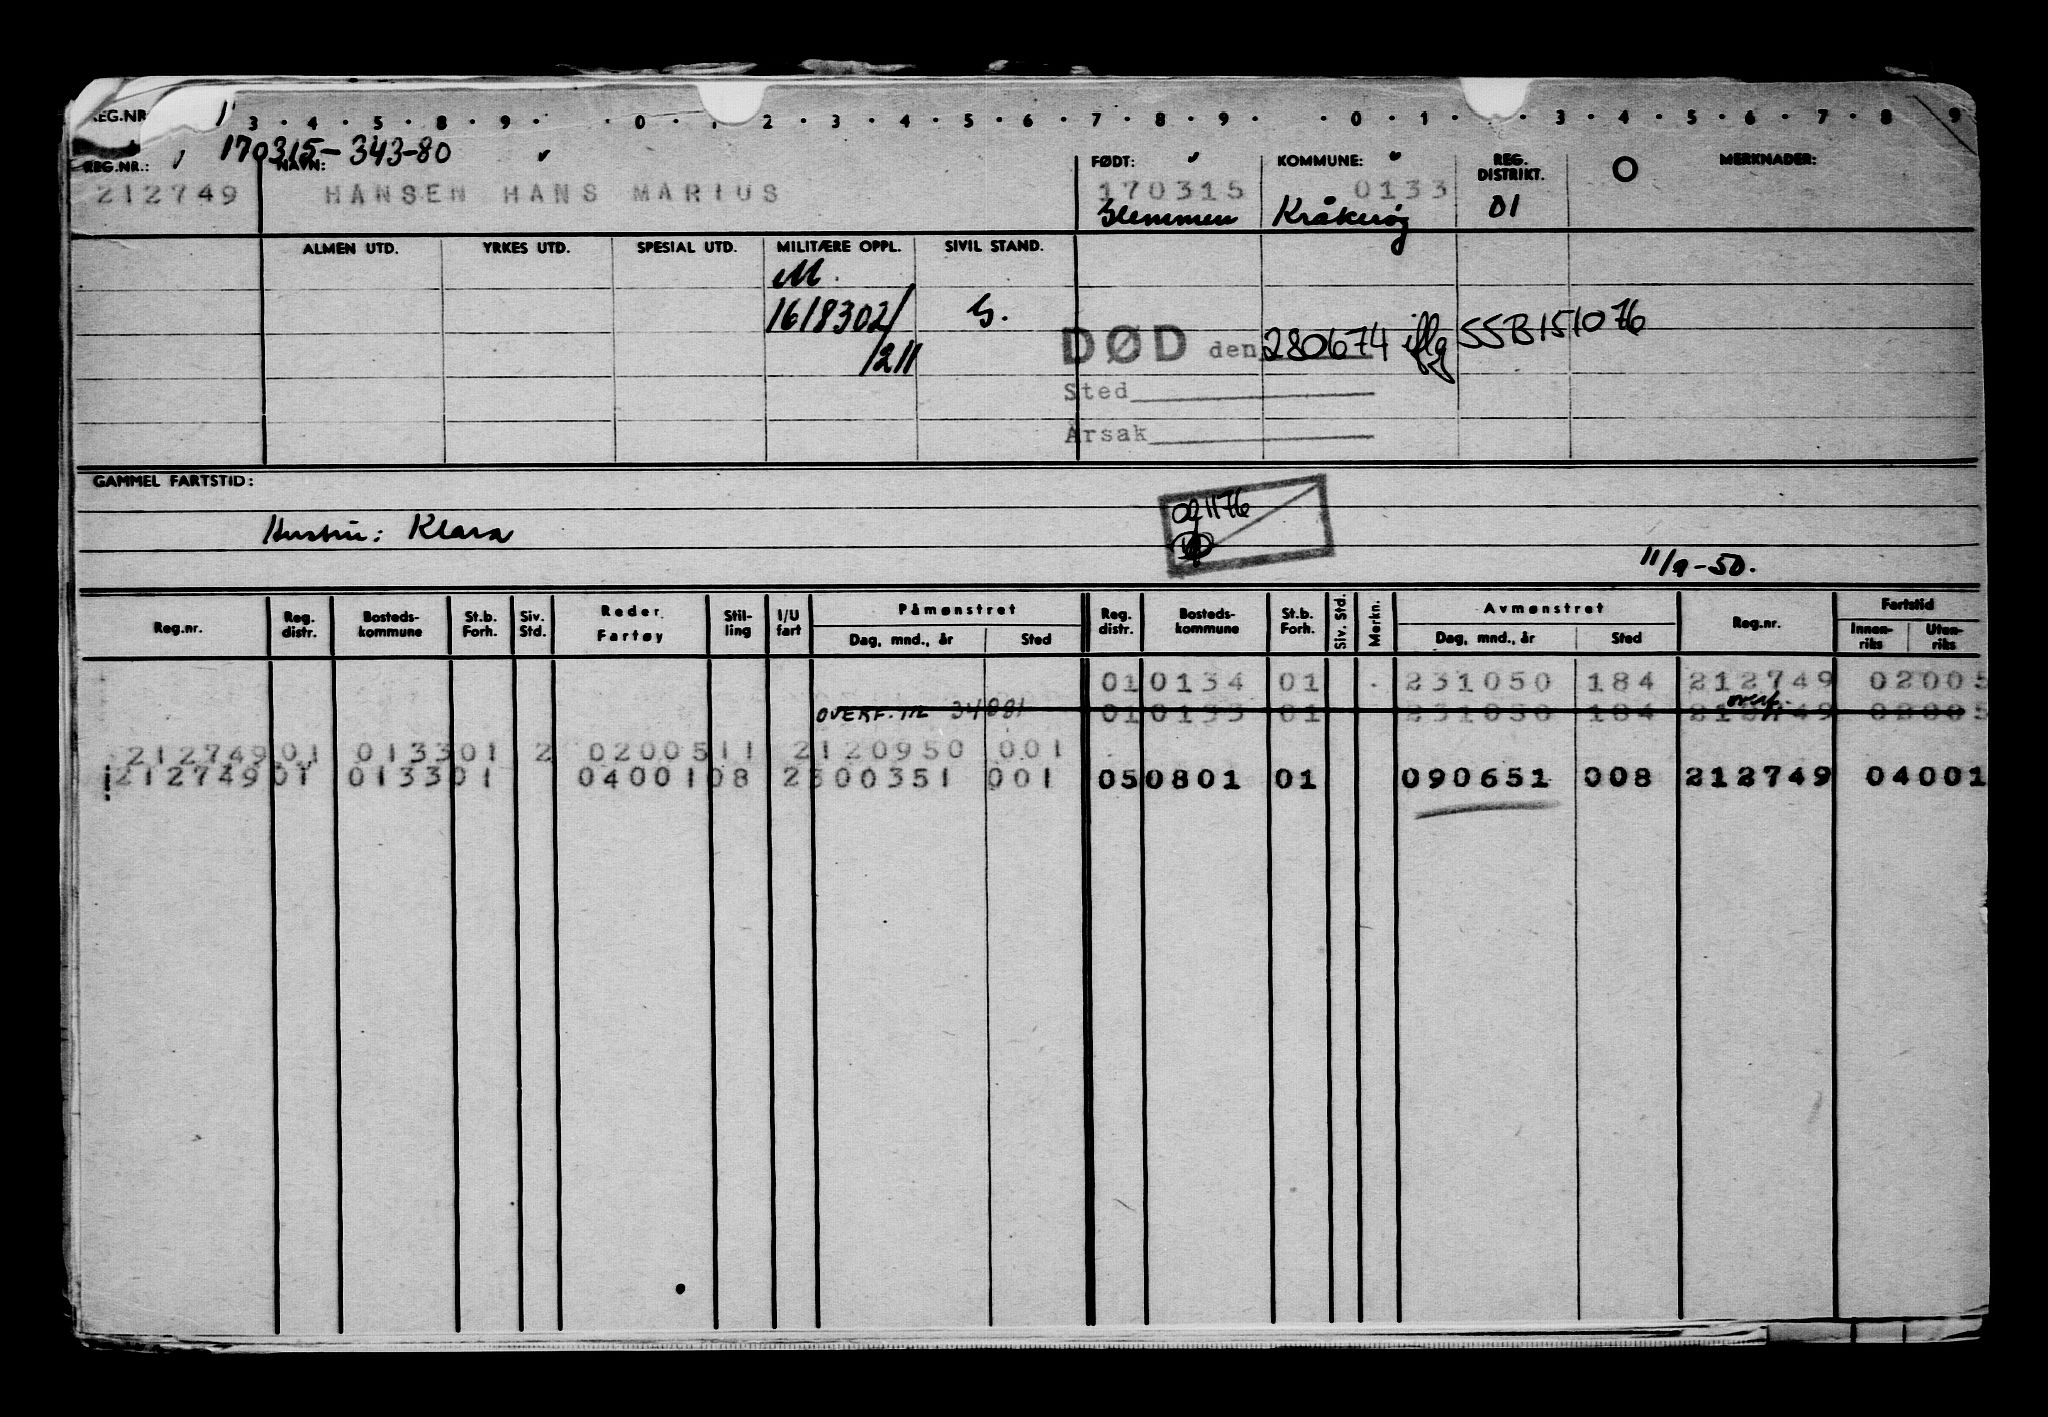 REG.NR. 1 3 . 4 . 5 . 8 . 9 . 0 . 1 2 . 3 . 4 . 5 . 6 . 7 . 8 . 9 . . 0 . 1 . . 3 . 4 . 5 . 6 . 7 . 8 9
170315-343-80
REG.NR.: NAVN: FØDT: KOMMUNE: REG. DISTRIKT. O MERKNADER:
212749 HANSEN HANS MARIUS 170315 0133 01
Glemmen Kråkerøy
ALMEN UTD. YRKES UTD. SPESIAL UTD. MILITÆRE OPPL. SIVIL STAND.
M.
1618302/ G.
/211
DØD den 280674 iflg SSB151076
Sted
Årsak
GAMMEL FARTSTID:
091176
Hustru: Klara
11/9-50.
Reg.nr. Reg. distr. Bosteds- kommune St.b. Forh. Siv. Std. Reder Fartøy Stil- ling I/U fart Påmønstret Dag, mnd., år Sted Reg. distr. Bosteds- kommune St.b. Forh. Siv. Std. Merkn. Avmønstret Dag, mnd., år Sted Reg.nr. Fartstid Innen- riks Uten- riks
01 0134 01 . 231050 184 212749 02005
OVERF. TIL 34881 01 0133 01 231050 184 212749 02005
overf.
212749 01 0133 01 2 02005 11 2 120950 001
212749 01 0133 01 04001 08 2 300351 001 05 0801 01 090651 008 212749 04001